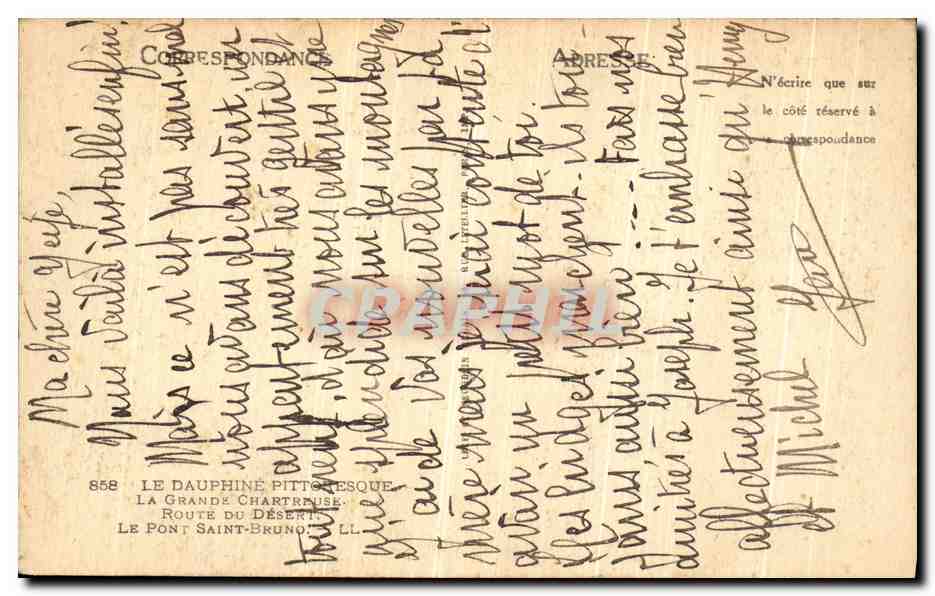 CORRESPONDANCE
ADRESSE
N'écrire que sur
le côté réservé à
la correspondance
858 LE DAUPHINÉ PITTORESQUE
LA GRANDE CHARTREUSE.
ROUTE DU DÉSERT.
LE PONT SAINT-BRUNO. LL
Ma chère
Nous voilà installés enfin!
Mais ce n'est pas sans mal
nous avons découvert un
appartement très gentil
tout cela d'où nous avons une
vue splendide sur les montagnes
J'ai de vos nouvelles par ta
mère mais je serai contente d'
avoir un petit mot de toi.
Les
dans aussi bien ... Fais nos
amitiés à Joseph. Je t'embrasse bien
affectueusement ainsi qu'Henry
et Michel
CRAPHIL